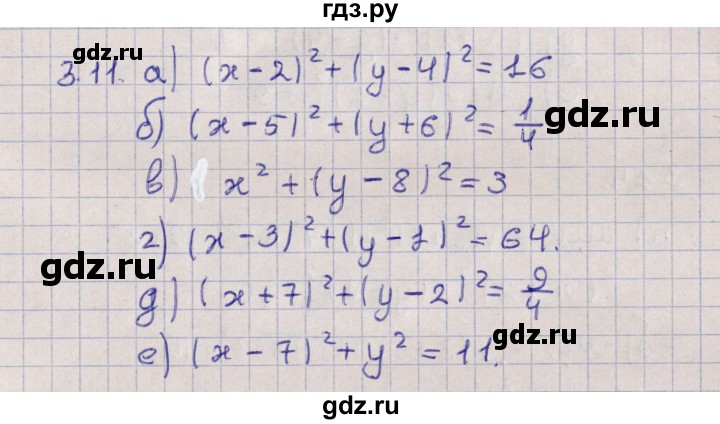 гдз.ру
gdz.ru
3.11. а) (x-2)²+(y-4)²=16
gdz.ru
б) (x-5)²+(y+6)²=1/4
в) x²+(y-8)²=3
г) (x-3)²+(y-1)²=64.
gdz.ru
gdz.ru
д) (x+7)²+(y-2)²=9/4
е) (x-7)²+y²=11.
gdz.ru
gdz.ru
gdz.ru